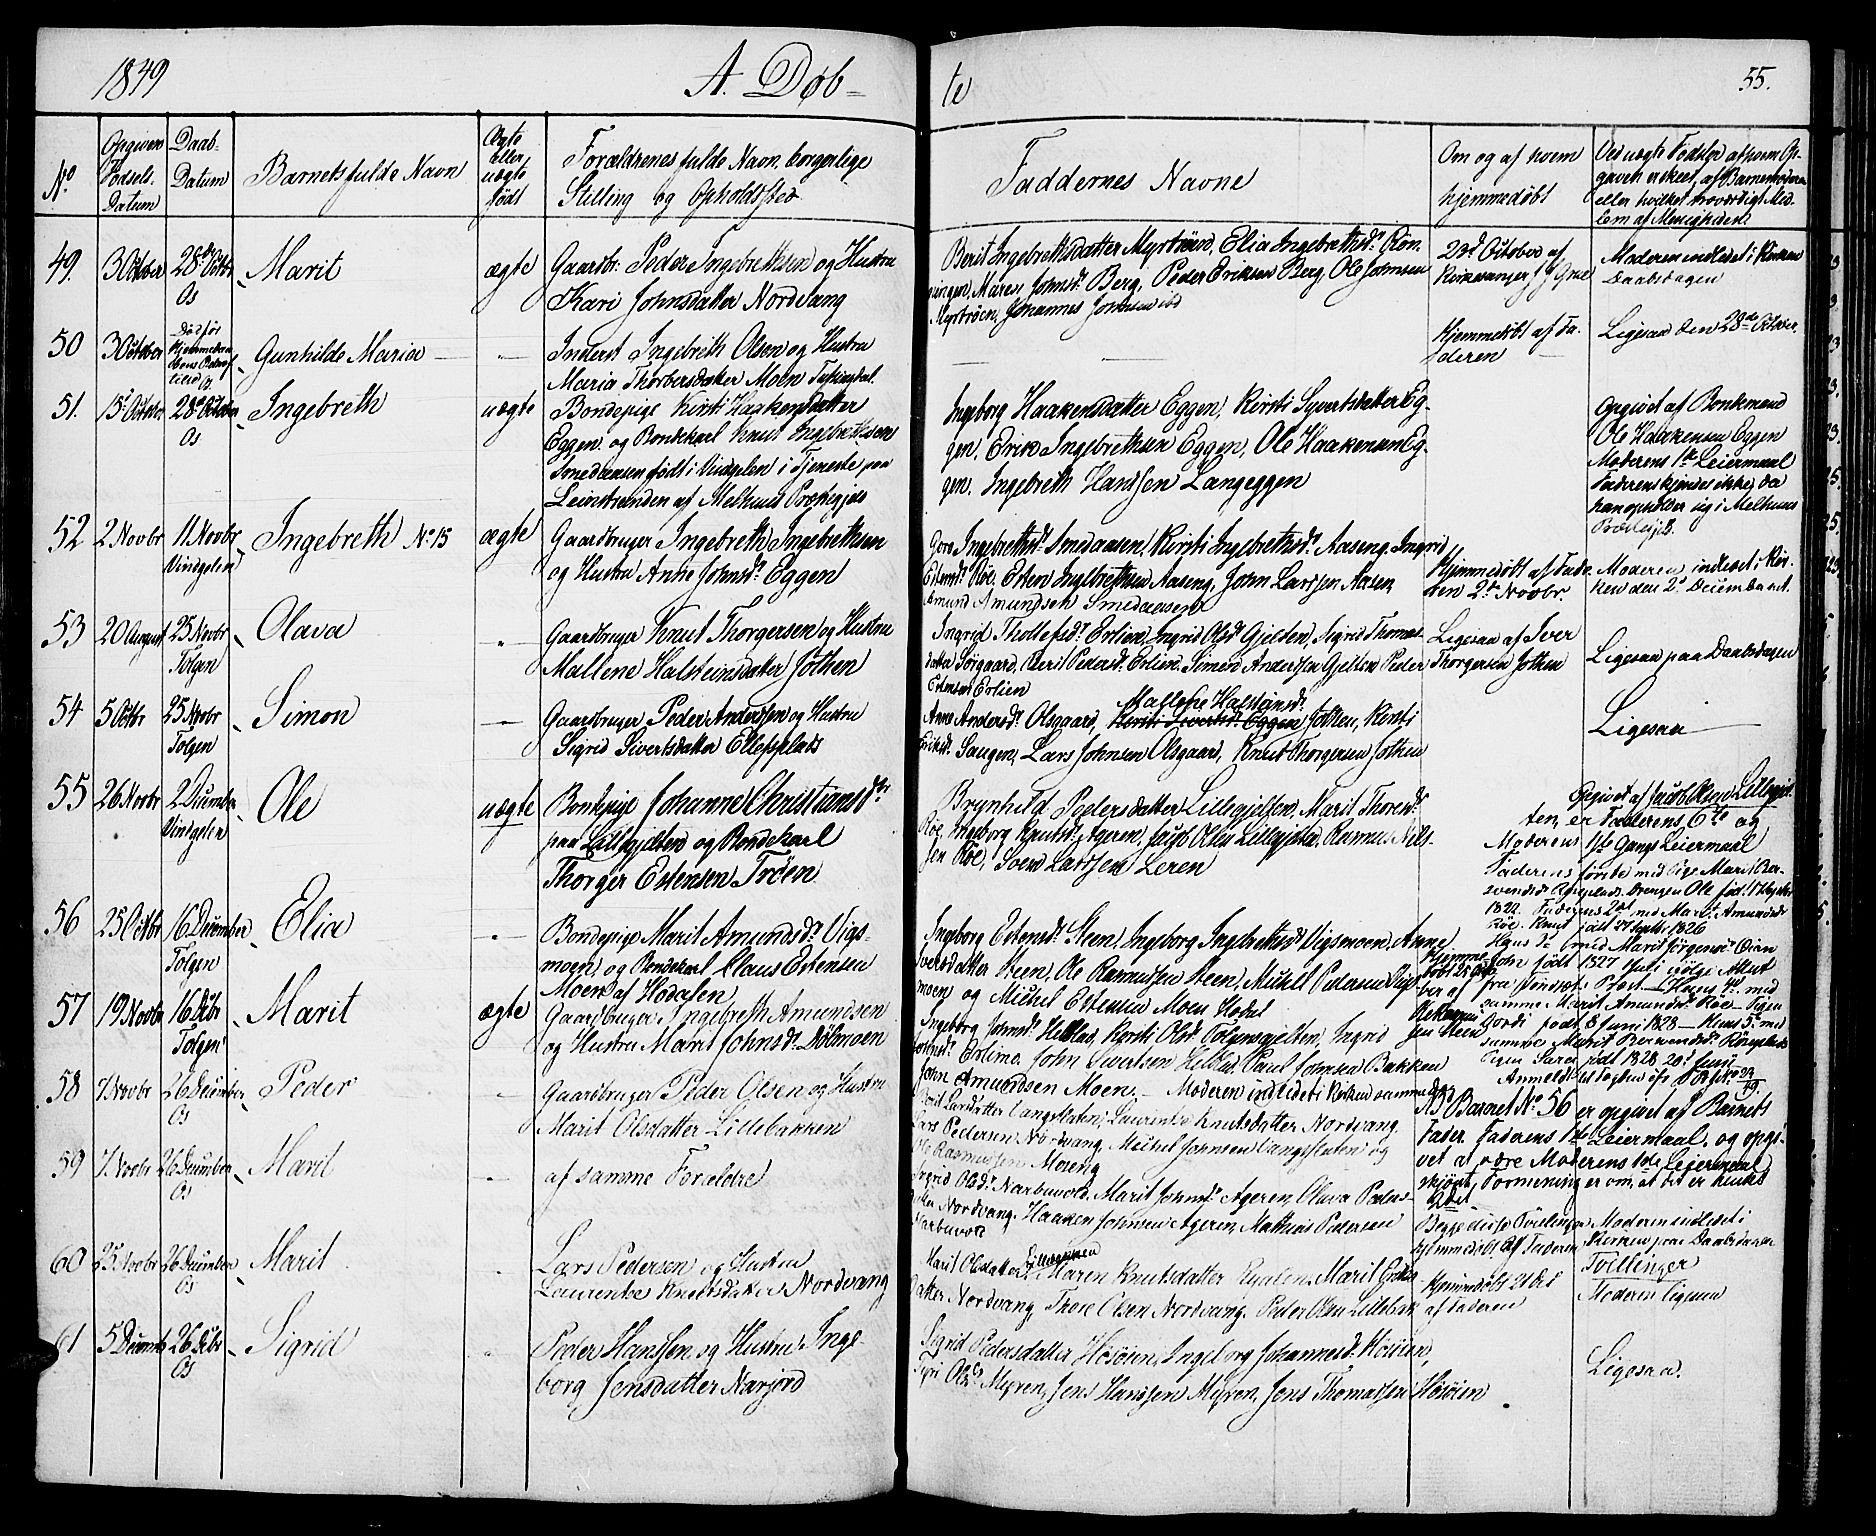 1849
A. Døb-
te
55.
No
Opgiven
Fødsels.
Datum
Daab-
Datum
Barnets fulde Navn
Ægte
Eller
uægte
født
Forældrenes fulde Navn, borgerlige
Stilling og Opholdssted
Faddernes Navne
Om og af hvem
hjemmedøbt
Ved uægte Fødsler af hvem Op-
gaven er skeet, af Barnemoderen
eller hvilket troværdigt Med-
lem af Menigheden
49.
3 October
28de Octbr
Os
Marit
ægte
Gaardbr: Peder Ingebrethsen og Hustru
Kari Johnsdatter Nordvang
Berit Ingebrethsdatter Myrtrøen, Elia Ingebrethsdr Røn
ningen, Maren Johnsdr Berg, Peder Eriksen Berg, Ole Johnsen
Myrtrøen, Johannes Johnsen ibd
23d October af
Kirkesanger
Moderen indledet i Kirken
Daabsdagen
50
3 October
Død før
Os
Gunhilde Maria
Inderst Ingebrith Olsen og Hustru
Maria Thorbersdatter Moen
Hjemmedøbt af Fa-
deren
Ligesaa den 28de October.
51.
15 October
28de October
Os
Ingebreth
uægte
Bondepige Kirsti Haakensdatter
Eggen og Bondekarl Knut Ingebrethsen
Smedaasen født i Vingelen i Tjeneste paa
Leinstranden af Melhuus Præstegjeld
Ingeborg Haakensdatter Eggen, Kirsti Syvertsdatter Eg-
gen, Erik Ingebrethsen Eggen, Ole Haakensen Eg-
gen, Ingebreth Hansen Langeggen
Opgivet af Bondemand
Ole Haakensen Eggen
Moderens 1ste Leiermaal
Faderens kjendes ikke, da
han opholder sig i Melhuus
Præstegjd.
52
2 Novbr
11 Novbr
Vindgelen
Ingebreth No 15
ægte
Gaardbruger Ingebreth Ingebrethsen
og Hustru Anne Johnsdr Eggen
Goro Ingebrethsdr Smedaasen, Kirsti Ingebrethsdr Aaseng, Ingrid
Estensdr Røe, Esten Ingebrethsen Aaseng, John Larssen Aasen,
Amund Amundsen Smedaasen
Hjemmedøbt af Fade-
ren 2de Novbr
Moderen indledet i Kir-
ken den 2de December
53
20 August
25 Novbr
Tolgen
Olava
Gaardbruger Knut Thorgersen og Hustru
Mallene Halsteinsdatter Jothen
Ingrid Thollefsdr Erlien, Ingrid Olsdr Gjelten, Sigrid Thomas-
datter Sørgaard, Berit Pedersdr Erlien, Simen Andersen Gjelten, Peder
Estensen Erlien
Ligesaa af Iver
Thorgersen Jothen
Ligesaa paa Daabsdagen
54
5 Octbr
25 Novbr
Tolgen
Simon
Gaardbruger Peder Anderssen og Hustru
Sigrid Sivertsdatter Ellefsplads
Mallene Halstensdr
Anne Andersdr Olsgaard, Kirsti Sivertsdr Eggen Jothen, Kirsti
Eriksdr Saugen, Lars Johnsen Olsgaard, Knut Thorgersen Jothen
Ligesaa
55
26 Novbr
2 December
Vindgelen
Ole
uægte
Bondepige Johanne Christiansdtr
paa Lillegjelten og Bondekarl
Thorger Estensen Trøen
Brynhild Pedersdatter Lillegjelten, Marit Thoresdr
Røe, Ingeborg Knutsdr Ageren, Jacob Olsen Lillegjelten, Rasmus Nils-
sen Røe, Svend Larssen Leren
Opgivet af Jacob Olsen Lillegjel-
ten, er Faderens 6te og
Moderens 1ste Gangs Leiermaal
Faderens første med Pige Marit Ber-
svendsdr Rønsplads, Drengen Ole født 17 Septbr
1822. Faderens 2det med Marit Amundsdr
Røe. Knut født 27 Septbr 1826
Hans 3de med Marit Jørgensdr Øien
John født 1827 Juli ifølge Attest
fra Præst. Hans 4de med
samme Marit Amundsdr Røe Pigen
Jordi født 8 Juni 1828 Hans 5te med
samme Marit Bersvendsdr Rønsplads
Pigen Sara født 1828 20de Juni
56
25 Octbr
16 December
Tolgen
Elia
Bondepige Marit Amundsdr Vigs-
moen og Bondekarl Claus Estensen
Moen af Hodalen
Ingeborg Estensdr Steen, Ingeborg Ingebrethsdr Vigsmoen, Anne
Iversdatter Steen, Ole Rasmussen Steen, Michel Pedersen Vigs-
moen og Michel Estensen Moen Hodal
57
19 Novbr
16 Debr
Tolgen
Marit
ægte
Gaardbruger Ingebreth Amundsen
og Hustru Marit Johnsdr Dølmoen
Ingeborg Johnsdr Hektoe, Kirsti Olsdr Tolgensgjelten, Ingrid
Erlimo. John Sivertsen Hektoe, Paul Johnsen Bakken
John Amundsen Moen. — Moderen indledet i Kirken samme dag
58
7 Novbr
26 December
Os
Peder
Gaardbruger Peder Olsen og Hustru
Marit Olsdatter Lillebakken
Berit Larsdatter Langsletten, Laurentse Knutsdatter Nordvang
Lars Pedersen Nordvang, Michel Johnsen Langsletten og
Ole Rasmussen Moseng
NB Barnet No 56 er opgivet af Barnets
Fader. Faderens 1ste Leiermaal, og opgi-
vet at være Moderens 1ste Leiermaal,
skjønt Formening er om, at det er hendes
2det
59
7 Novbr
26 December
Os
Marit
af samme Forældre
Ingrid Olsdr Narbuvold, Marit Johnsdr Ageren, Olava Peders-
datter Nordvang, Haaken Johnsen Ageren, Mathias Pedersen
Narbuvold
Begge disse Tvillinger
hjemmedøbt af Faderen
Moderen indledet i
Kirken paa Daabsdagen
Tvillinger
60
25 Novbr
26 December
Os
Marit
Lars Pedersen og Hustru
Laurentse Knutsdatter Nordvang
Marit Olsdatter Lillebakken, Maren Knutsdatter Ryalen, Marit Eriks-
datter Nordvang, Thore Olsen Nordvang, Peder Olsen Lillebak
Hjemmedøbt 21 Oct
af Faderen
Moderen ligesaa
61
5 Decemb
26 Debr
Os
Sigrid
Peder Hanssen og Hustru Inge
borg Jensdatter Narjord
Sigrid Pedersdatter Høsøien, Ingeborg Johannesdr Høsøien,
Siri Olsdr Myren, Jens Hanssen Myren, Jens Thomassen Høsøien
Ligesaa.